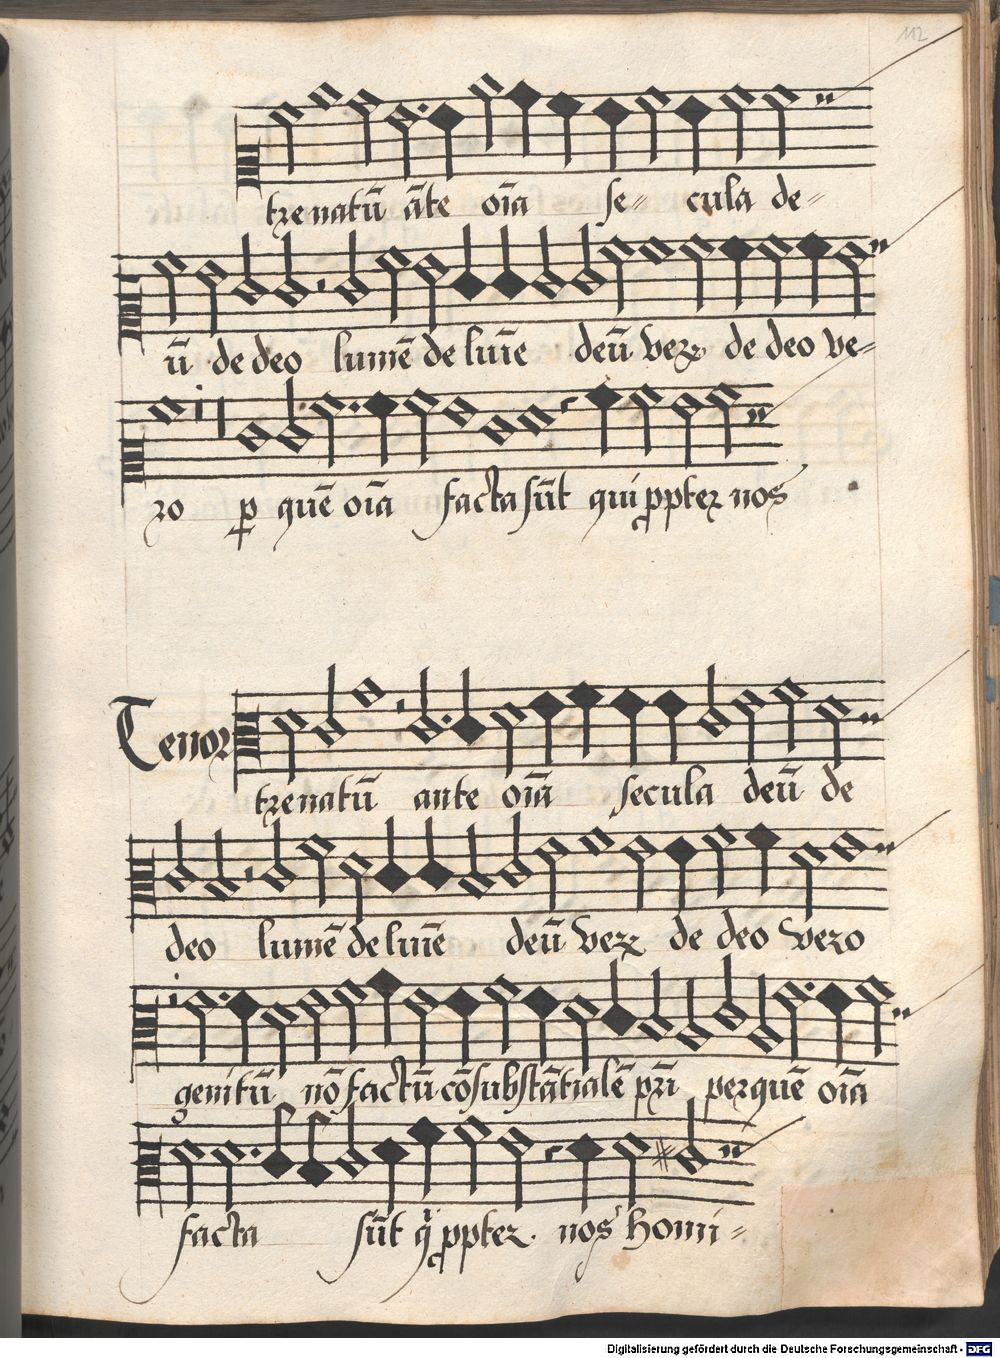 112
tre natū āte oīa se= cula de=
ū de deo lumē de luīe deū verꝝ de deo ve=
ro ꝑ quē oīa facta sūt qui ꝓpter nos
Tenor
tre natū ante oīa secula deū de
deo lumē de luīe deū verꝝ de deo vero
genitū nō factū cōsubstātialē pr̄i per quē oīa
facta sūt q̇ ꝓpter. nos homi=
Digitalisierung gefördert durch die Deutsche Forschungsgemeinschaft - DFG